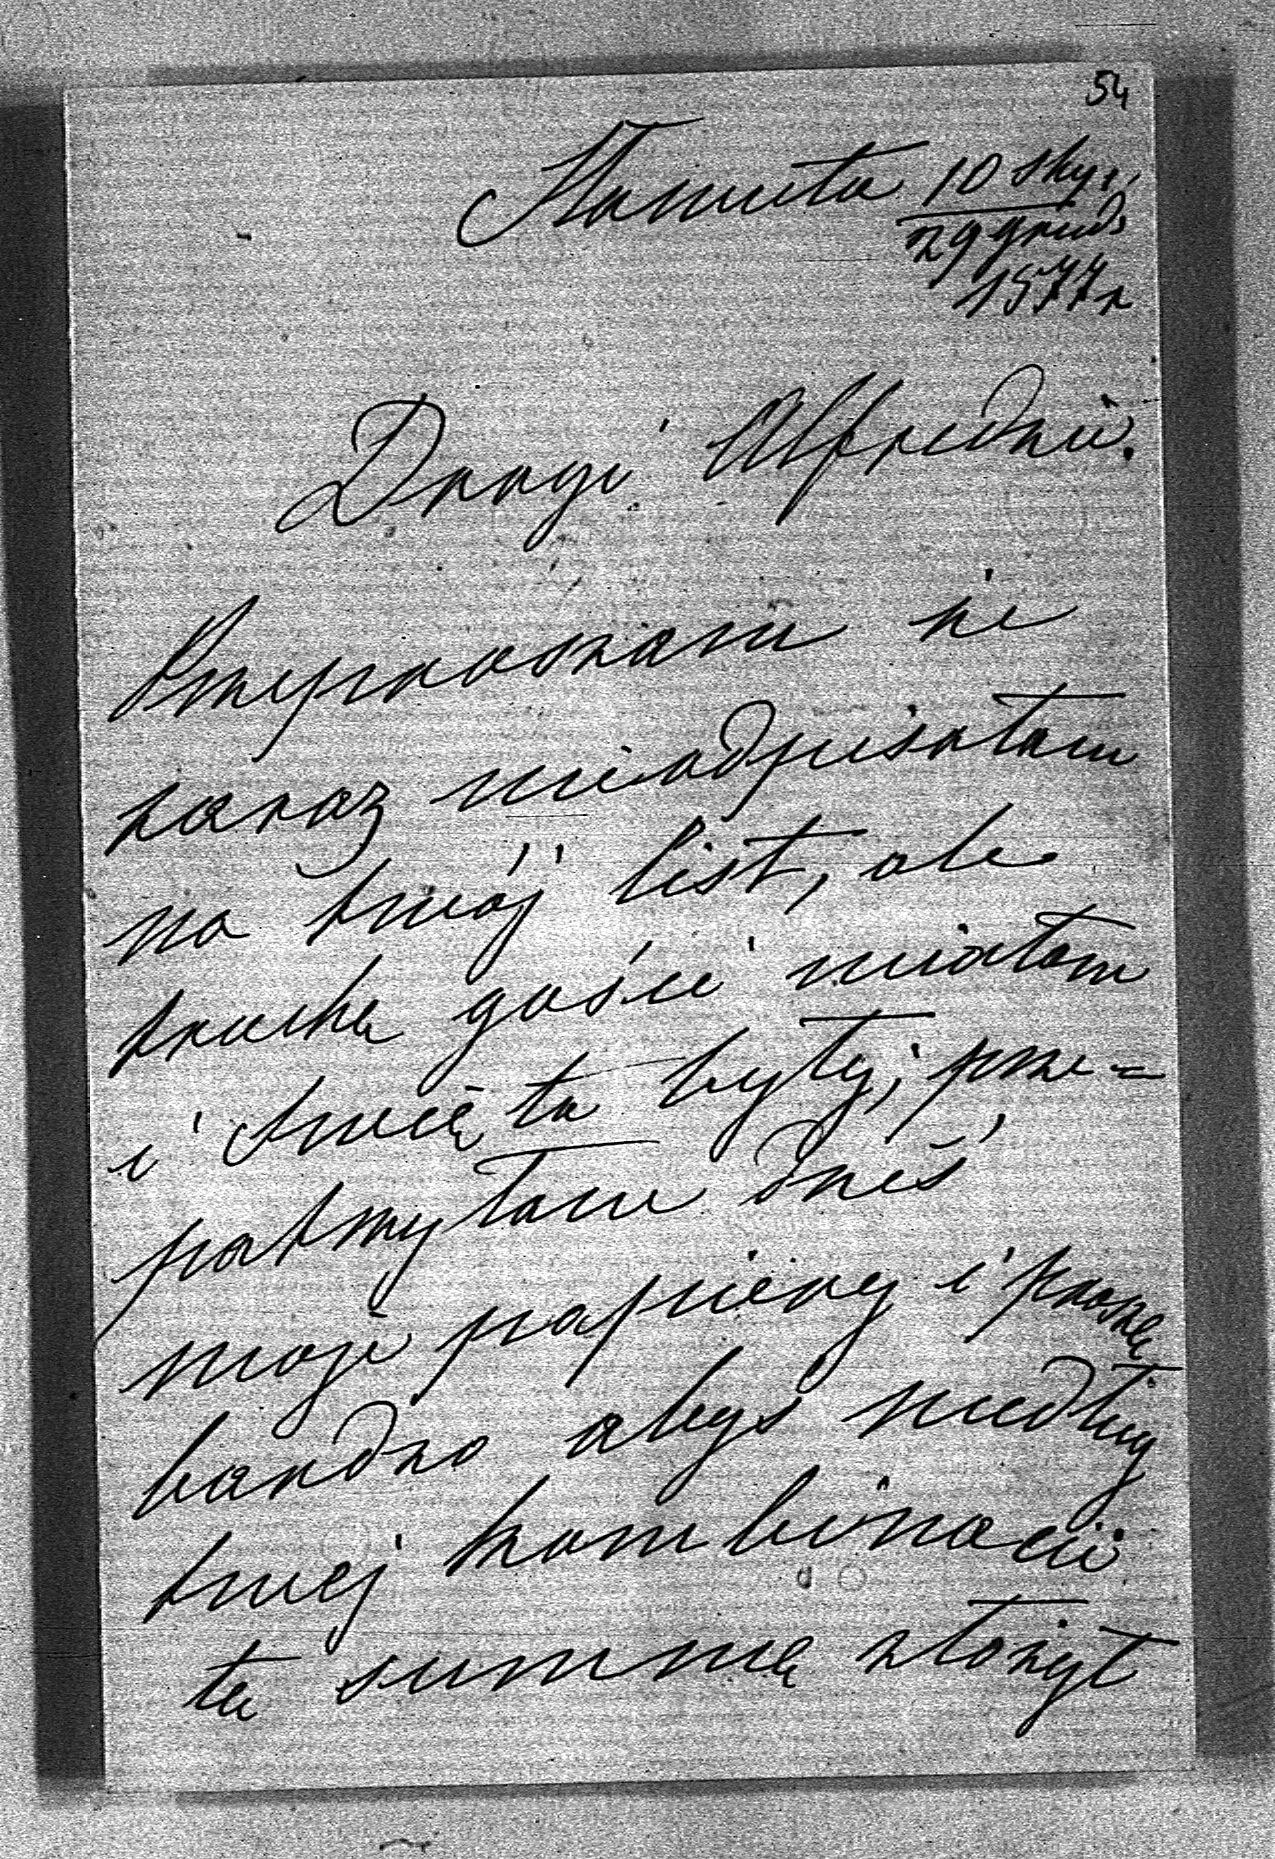 54
Sławuta 10 sty.
29 grud.
1877 r
Drogi Alfredzie.
Przepraszam że
zaraz nieodpisałam
na twój list, ale
trochę gości miałam
i święta były; prze=
patrzyłam dziś
moje papiery i proszę
bardzo abyś według
twej kombinacii
tę summę złożył